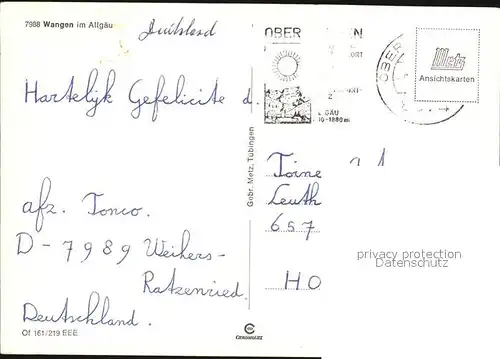 7988 Wangen im Allgäu
Duitsland
OBER EN
ORT
ORT-
GÄU
-1880 m
OBER
Metz
Ansichtskarten
Hartelijk Gefelicite d.
Gebr. Metz, Tübingen
Toine
Leuth
afz. Tonco.
657
D-7989 Weihers-
privacy protection
Datenschutz
Ratzenried.
HO
Deutschland.
Of 161/219 EEE
CEKUMART